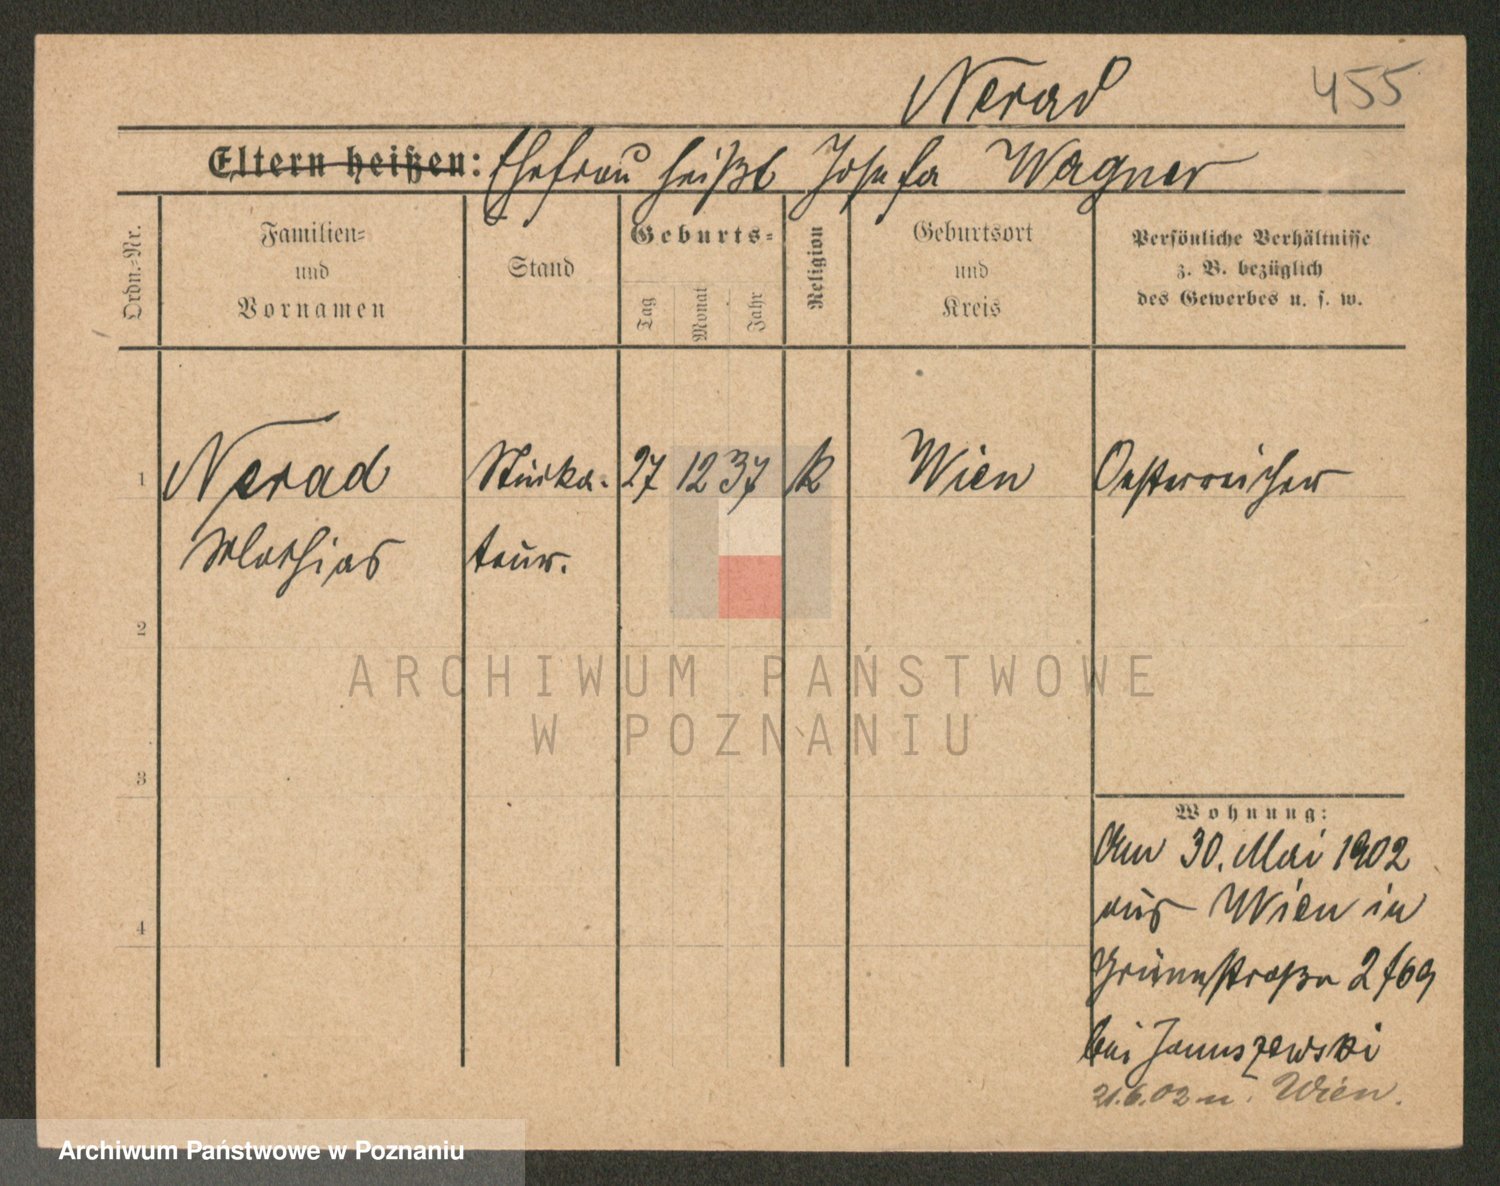 Nerad
455
Eltern heißen: Ehefrau heißt Josefa Wagner
Ordn.-Nr.
Familien-
und
Vornamen
Stand
Geburts-
Tag
Monat
Jahr
Religion
Geburtsort
und
Kreis
Persönliche Verhältnisse
z. B. bezüglich
des Gewerbes u. s. w.
1 Nerad Stucka- 27 12 37 k Wien Oesterreicher
Mathias teur.
2
3
4
Wohnung:
Am 30. Mai 1902
aus Wien in
Grünestraße 2
bei Januszewski
21.6.02 n. Wien.
ARCHIWUM PAŃSTWOWE
W POZNANIU
Archiwum Państwowe w Poznaniu